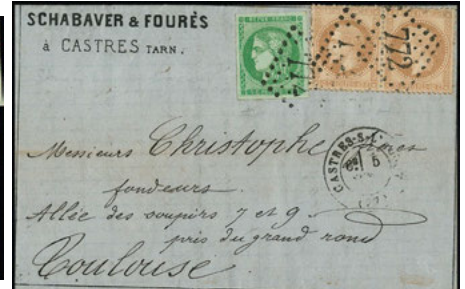 SCHABAVER & FOURÈS
à CASTRES TARN.
772
772
CASTRES-S-
5
Messieurs Christophe
fondeurs
Allée des soupirs 7 et 9
près du grand rond
Toulouse